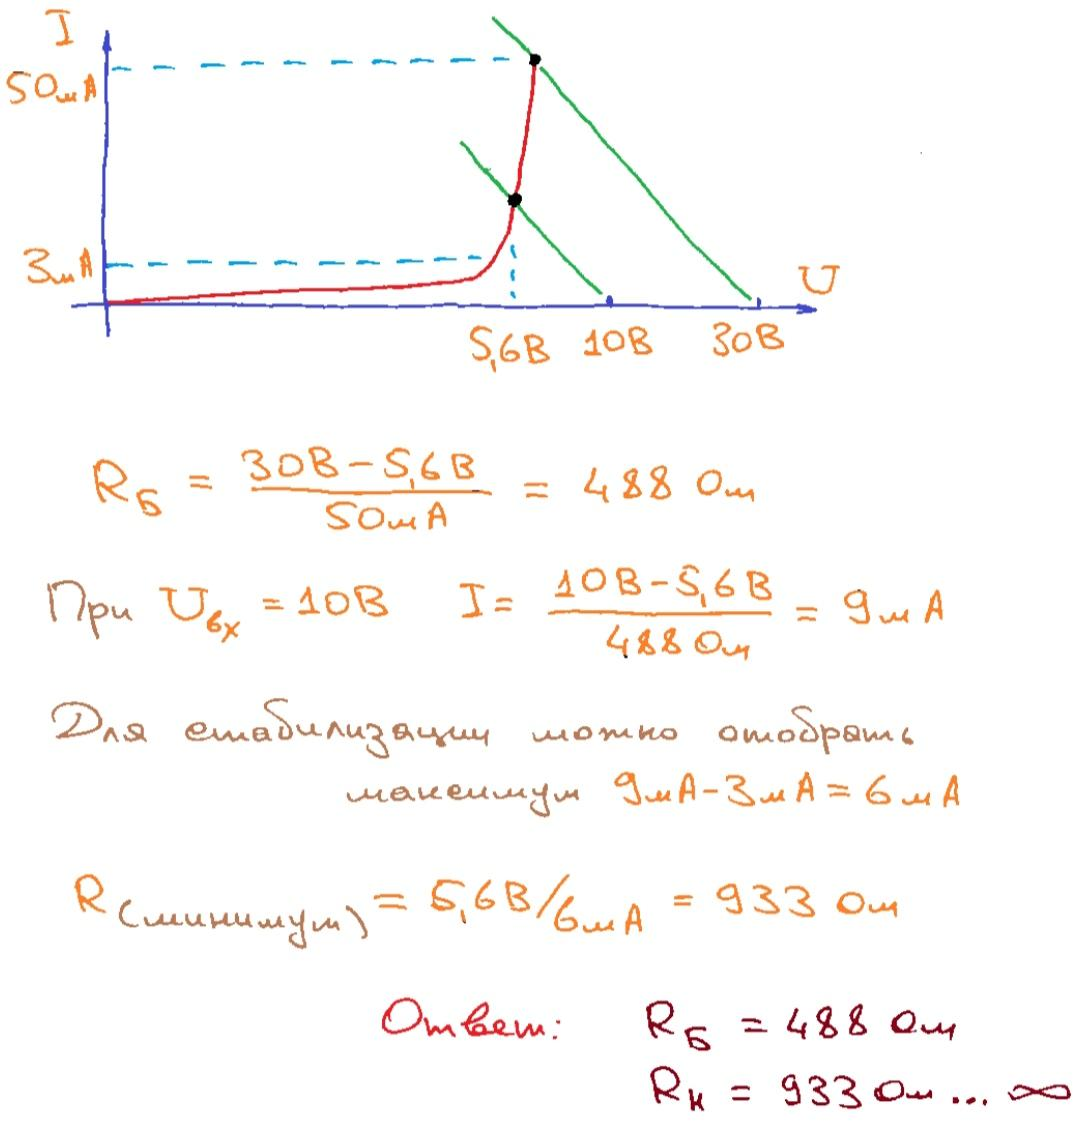 I
50мА
3мА
U
5,6В 10В 30В
RБ = 30В - 5,6В / 50мА = 488 Ом
При Uвх = 10В I = 10В - 5,6В / 488 Ом = 9мА
Для стабилизации можно отобрать
максимум 9мА - 3мА = 6мА
R(минимум) = 5,6В/6мА = 933 Ом
Ответ: RБ = 488 Ом
Rн = 933 Ом ... ∞